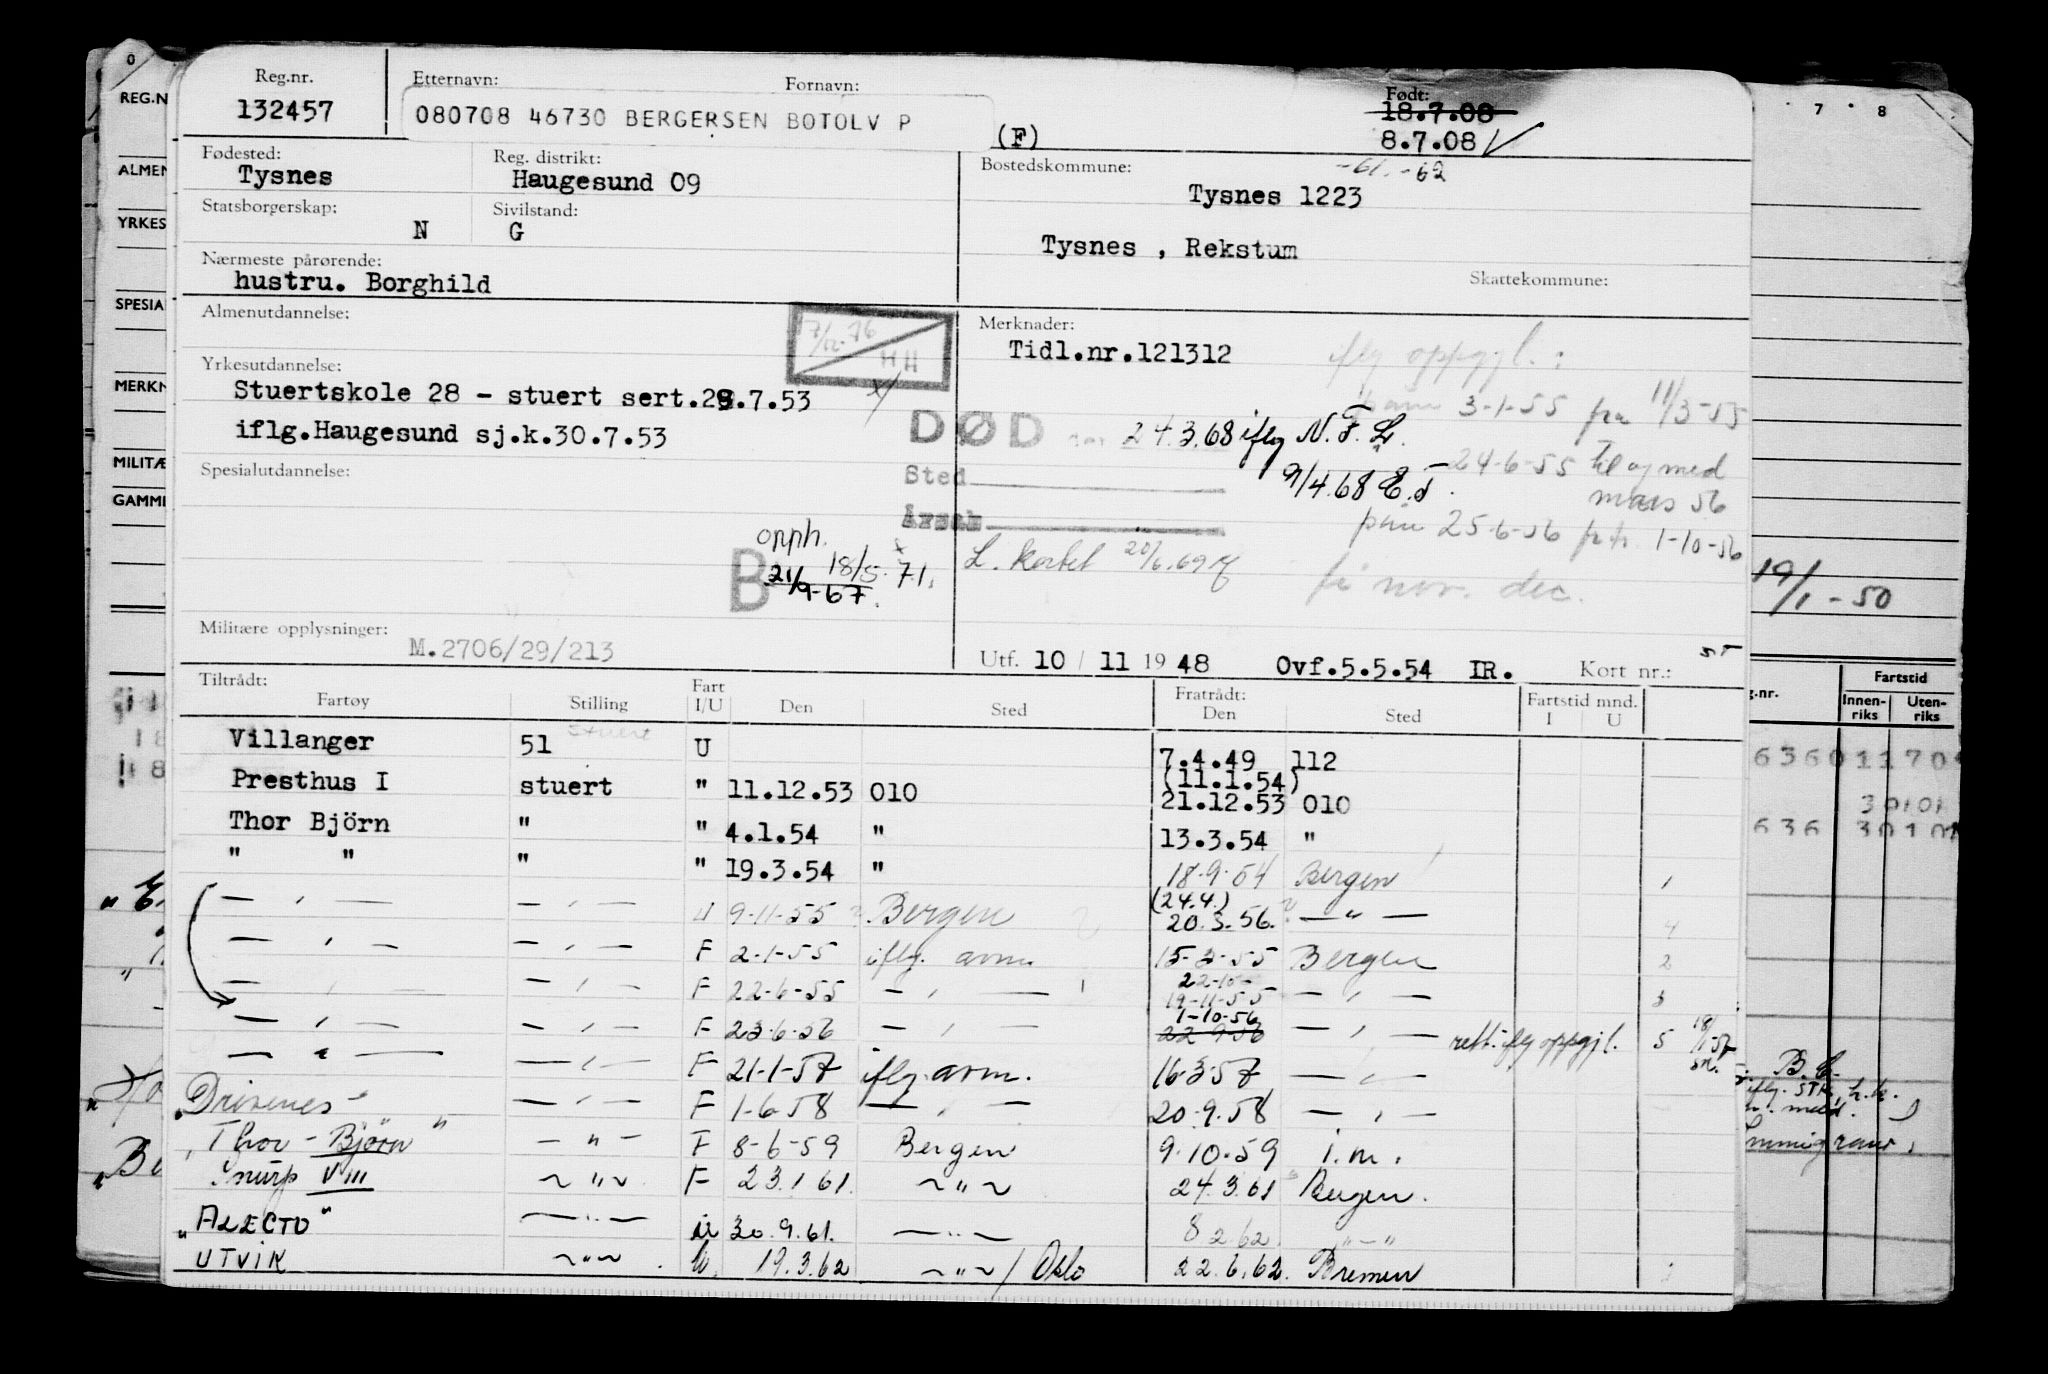 Reg.nr. Etternavn: Fornavn: Født:
132457 080708 46730 BERGERSEN BOTOLV P (F) 18.7.08
8.7.08
Fødested: Reg. distrikt: Bostedskommune: -61. -62
Tysnes Haugesund 09 Tysnes 1223
Statsborgerskap: Sivilstand:
N G Tysnes , Rekstum
Nærmeste pårørende: Skattekommune:
hustru. Borghild
Almenutdannelse: 7/12.76 HH Merknader:
Tidl.nr.121312 iflg oppgjl.:
Yrkesutdannelse:
Stuertskole 28 - stuert sert.29.7.53 3-1-55 fra 11/3-55
iflg.Haugesund sj.k.30.7.53 DØD 24.3.68 iflg N.F.L.
24-6-55 til og med
Spesialutdannelse: Sted 9/4.68 E.T. mars 56
Årsak påm 25-6-56 1-10-56
opph. L. kortet 20/6.69
B 21/9-67. 18/5.71. nov. dec.
19/1-50
Militære opplysninger: M.2706/29/213
Utf. 10/11 1948 Ovf.5.5.54 IR. Kort nr.:
Tiltrådt: Fart Fratrådt: Fartstid mnd.
Fartøy Stilling I/U Den Sted Den Sted I U
Villanger 51 stuert U 7.4.49 112
(11.1.54)
Presthus I stuert " 11.12.53 010 21.12.53 010
Thor Björn " " 4.1.54 " 13.3.54 "
" " " " 19.3.54 " 18.9.54 Bergen 1
(24.4.)
— " — — " — U 9-11-55 Bergen 20.3.56. — " — 4
— " — — " — F 2-1-55 iflg. avm. 15-3-55 Bergen 2
22-10
— " — — " — F 22-6-55 — " — 19-11-55 — " — 3
1-10-56
— " — — " — F 23-6-56 — " — 22-9-56 — " — rett. iflg oppgjl. 5 18/1-57
— " — — " — F 21-1-57 iflg. avm. 16-3-57 — " —
"Drivenes" — " — F 1-6-58 — " — 20.9.58 — " —
"Thor-Bjørn" — " — F 8-6-59 Bergen 9.10.59 i.m.
Snurp VIII — " — F 23.1.61. — " — 24.3.61 Bergen.
"ALECTO" — " — U 30.9.61. — " — 8.2.62 " — "
UTVIK — " — U. 19.3.62 — " — / Oslo 22.6.62. Bremen
REG.N
ALMEN
YRKES
SPESIA
MERKN
MILITÆ
GAMM
0
7 8
g.nr. Fartstid
Innen-riks Uten-riks